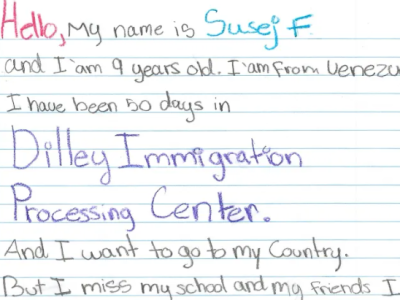 Hello, My name is Susej F
and I'am 9 years old. I'am from Venezu
I have been 50 days in
Dilley Immigration
Processing Center.
And I want to go to my Country.
But I miss my school and my friends I